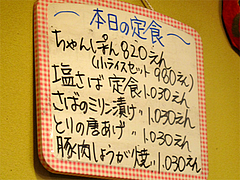 ～本日の定食～
ちゃんぽん820えん
(小ライスセット980えん)
塩さば定食1.030えん
さばのミリン漬け〃1.030えん
とりの唐あげ〃1.030えん
豚肉しょうが焼〃1.030えん